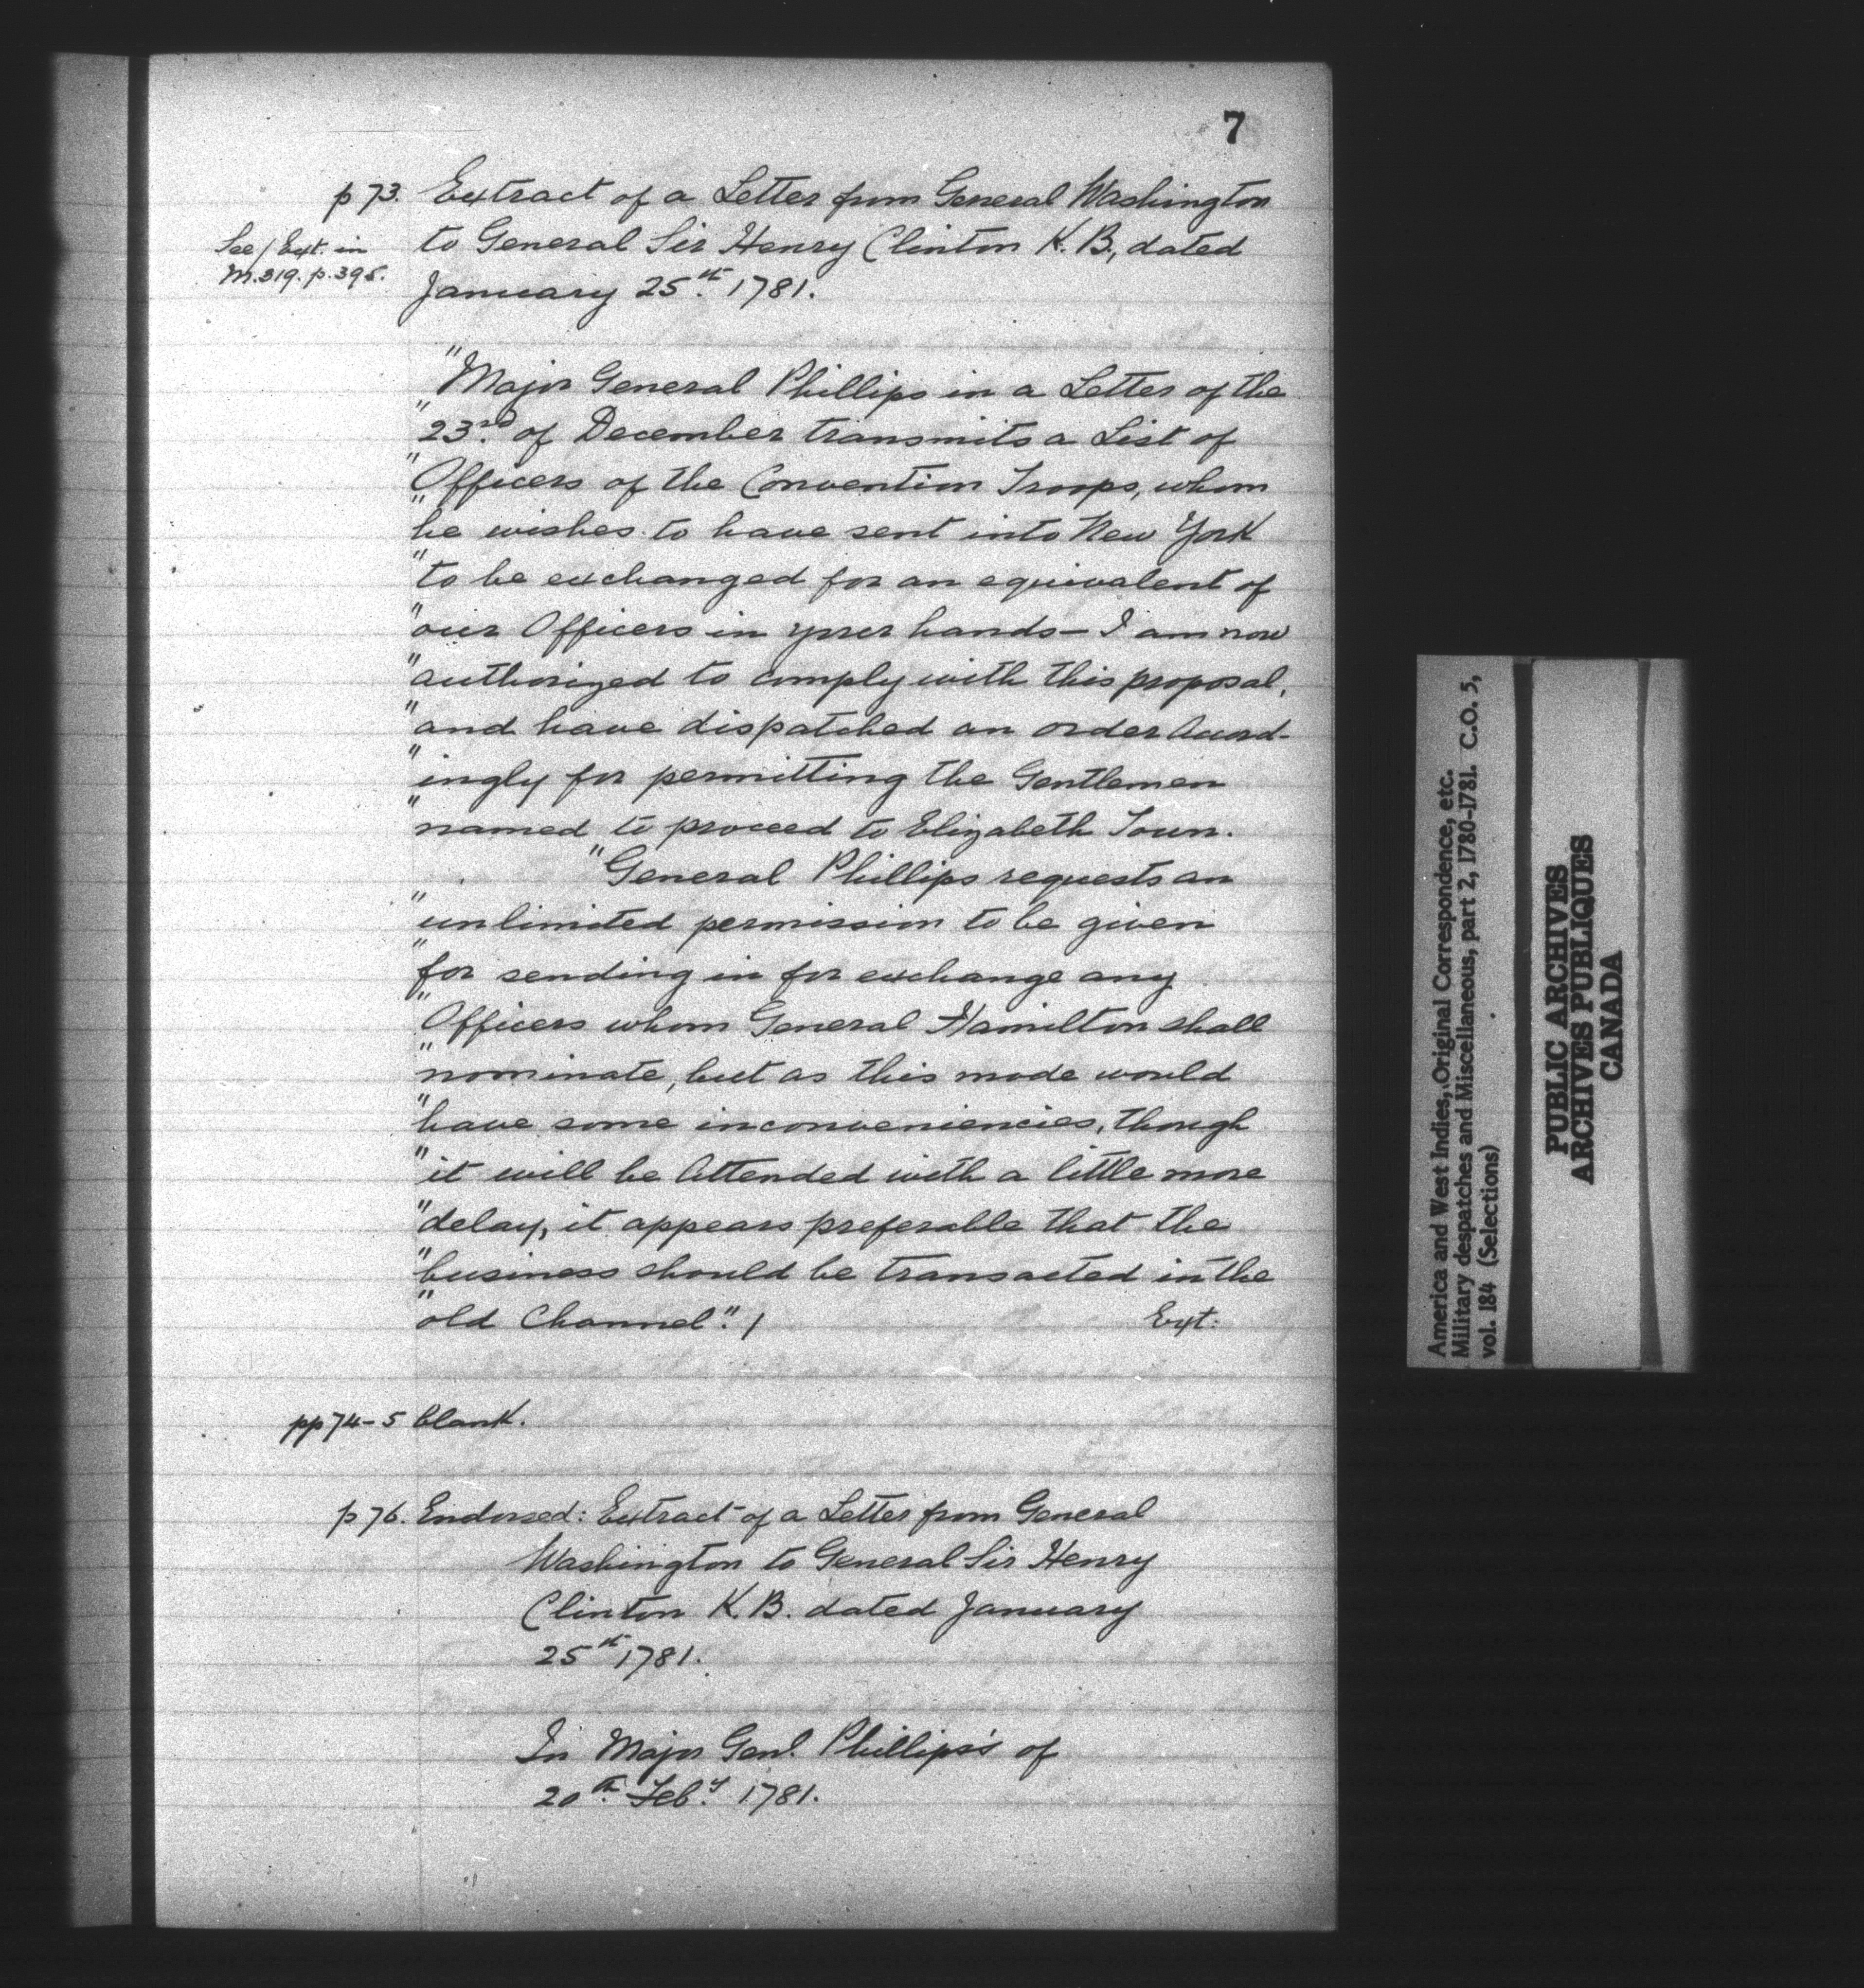 7
p 73. Extract of a Letter from General Washington
See / Ext. in
M.319. p.395.
to General Sir Henry Clinton K.B., dated
January 25th. 1781.
"Major General Phillips in a Letter of the
"23rd. of December transmits a List of
"Officers of the Convention Troops, whom
"he wishes to have sent into New York
"to be exchanged for an equivalent of
"our Officers in your hands — I am now
"authorized to comply with this proposal,
"and have dispatched an order Accord-
"ingly for permitting the Gentlemen
"named to proceed to Elizabeth Town.
"General Phillips requests an
"unlimited permission to be given
"for sending in for exchange any
"Officers whom General Hamilton shall
"nominate, but as this mode would
"have some inconveniencies, though
"it will be Attended with a little more
"delay, it appears preferable that the
"business should be transacted in the
"old Channel". / Ext.
pp 74-5 blank.
p 76. Endorsed: Extract of a Letter from General
Washington to General Sir Henry
Clinton K.B. dated January
25th 1781.
In Major Genl. Phillips's of
20th. Feby. 1781.
America and West Indies, Original Correspondence, etc.
Military despatches and Miscellaneous, part 2, 1780-1781. C.O. 5,
vol. 184 (Selections)
PUBLIC ARCHIVES
ARCHIVES PUBLIQUES
CANADA